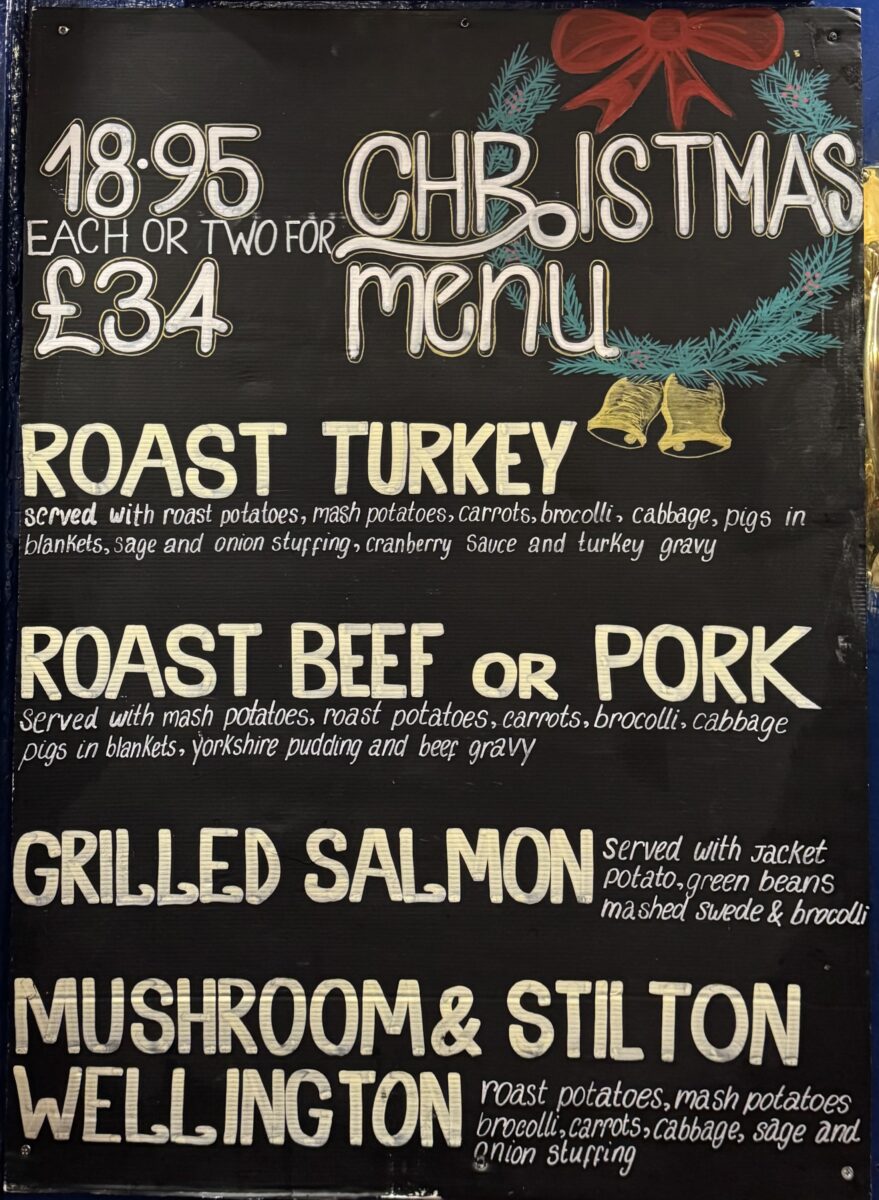 18.95
EACH OR TWO FOR
£34
CHRISTMAS
menu
ROAST TURKEY
served with roast potatoes, mash potatoes, carrots, brocolli, cabbage, pigs in
blankets, sage and onion stuffing, cranberry sauce and turkey gravy
ROAST BEEF OR PORK
served with mash potatoes, roast potatoes, carrots, brocolli, cabbage
pigs in blankets, yorkshire pudding and beef gravy
GRILLED SALMON
served with Jacket
potato, green beans
mashed swede & brocolli
MUSHROOM & STILTON
WELLINGTON
roast potatoes, mash potatoes
brocolli, carrots, cabbage, sage and
onion stuffing